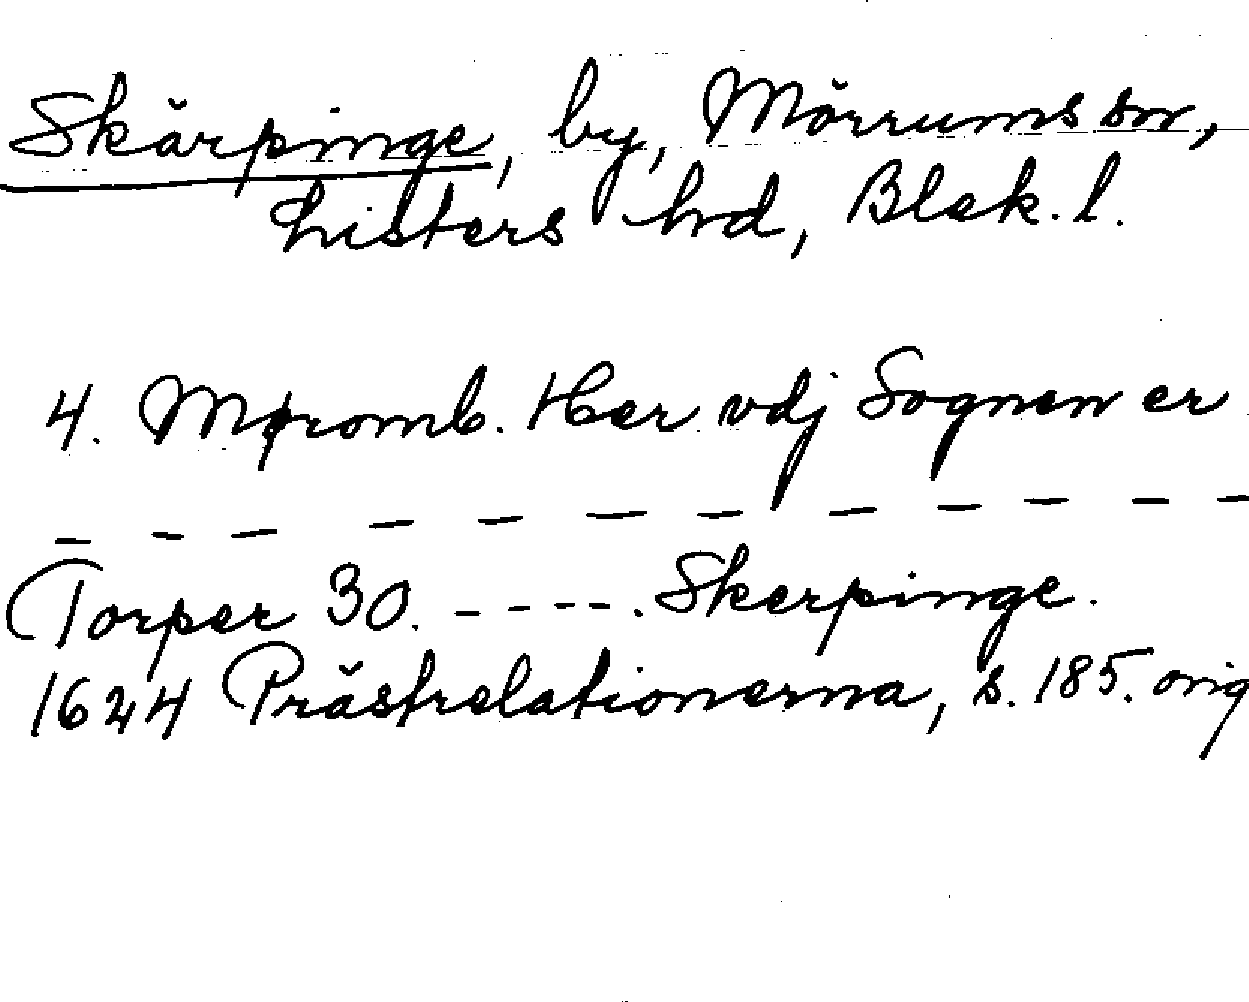 Skärpinge, by, Mörrums sn,
Listers hrd, Blek. l.
4. Møromb. Her vdj Sognen er
— — — — — — — — — — — —
Torper 30. - - - - -. Skerpinge.
1624 Prästrelationerna, s. 185. orig